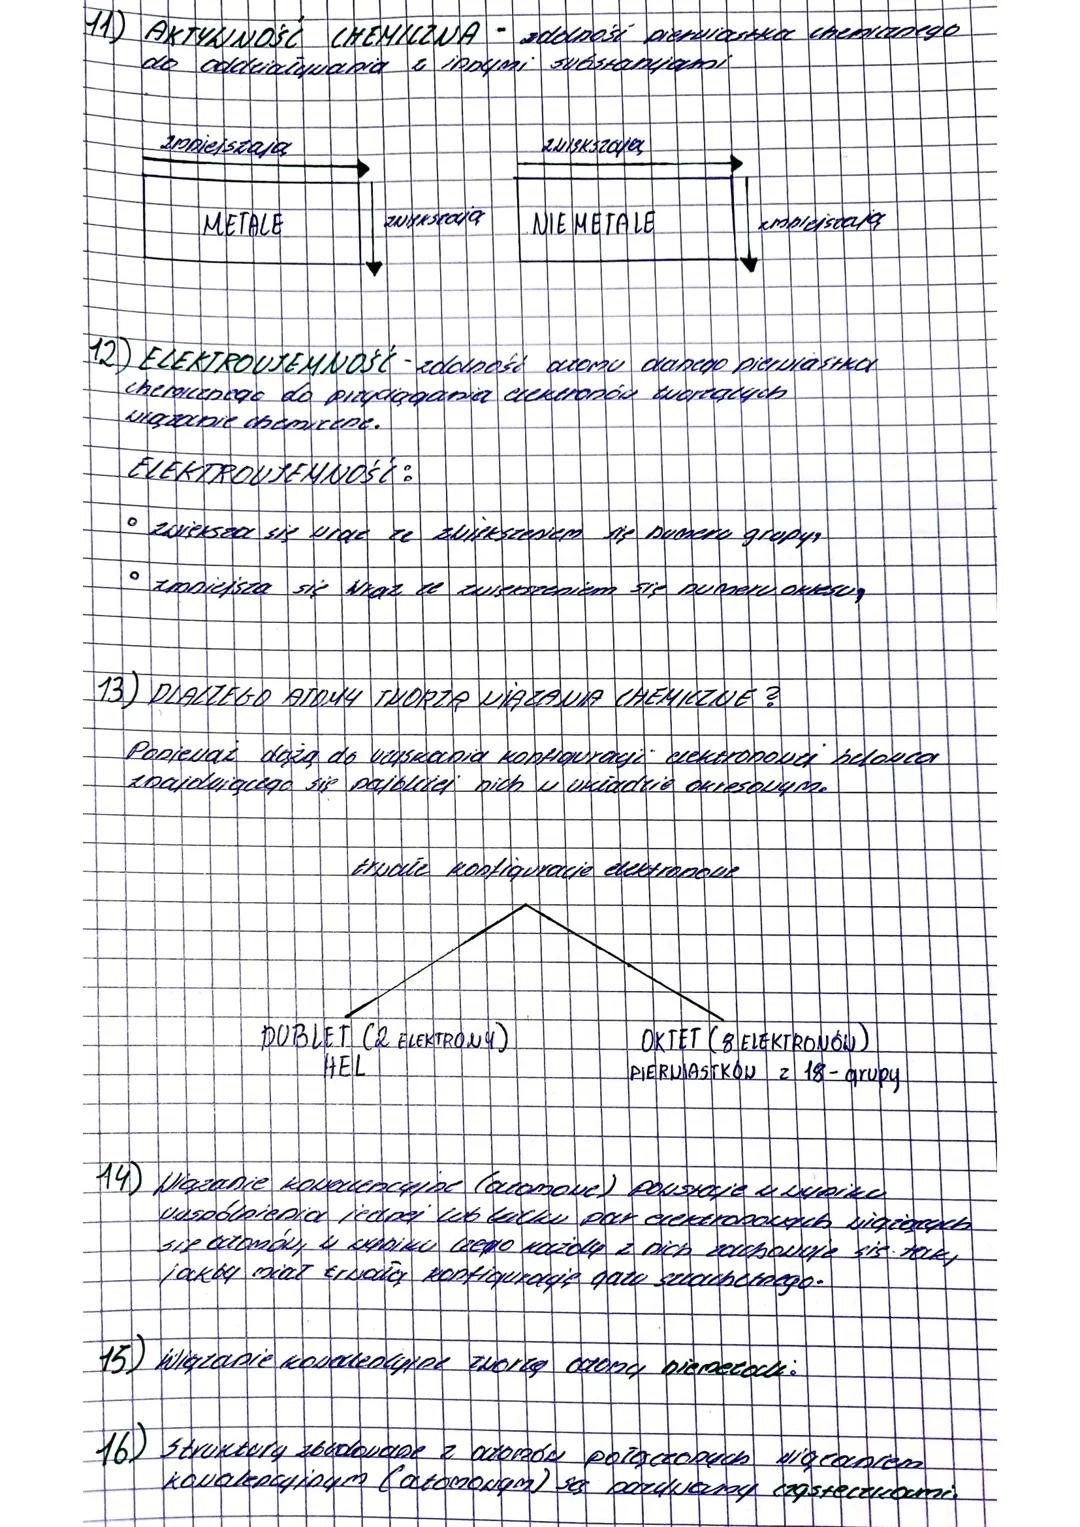 11) AKTYWNOŚĆ CHEMICZNA - zdolność pierwiastka chemicznego
do oddziaływania z innymi substancjami
zmniejszają
zwiększają
METALE
zwiększają
NIEMETALE
zmniejszają
12) ELEKTROUJEMNOŚĆ - zdolność atomu danego pierwiastka
chemicznego do przyciągania elektronów tworzących
wiązanie chemiczne.
ELEKTROUJEMNOŚĆ:
° zwiększa się wraz ze zwiększeniem się numeru grupy,
° zmniejsza się wraz ze zwiększeniem się numeru okresu,
13) DLACZEGO ATOMY TWORZĄ WIĄZANIA CHEMICZNE?
Ponieważ dążą do uzyskania konfiguracji elektronowej helowca
znajdującego się najbliżej nich w układzie okresowym.
trwałe konfiguracje elektronowe
DUBLET (2 ELEKTRONY)
HEL
OKTET (8 ELEKTRONÓW)
PIERWIASTKÓW z 18-grupy
14) Wiązanie kowalencyjne (atomowe) powstaje w wyniku
uwspólnienia jednej lub kilku par elektronowych wiążących
się atomów, w wyniku czego każdy z nich zachowuje się tak,
jakby miał trwałą konfigurację gazu szlachetnego.
15) Wiązanie kowalencyjne tworzą atomy niemetali.
16) Struktury zbudowane z atomów połączonych wiązaniem
kowalencyjnym (atomowym) są nazywamy cząsteczkami.